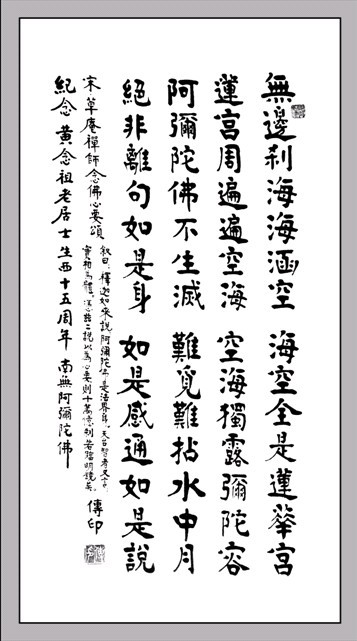 無邊刹海海涵空 海空全是蓮華宮
蓮宮周遍遍空海 空海獨露彌陀容
阿彌陀佛不生滅 難覓難拈水中月
絕非離句如是身 如是感通如是說
宋草庵禪師念佛心要頌
敘曰釋迦如來說阿彌陀佛是法界身天台智者又言
實相為體
傳印
紀念黃念祖老居士生西十五周年 南無阿彌陀佛